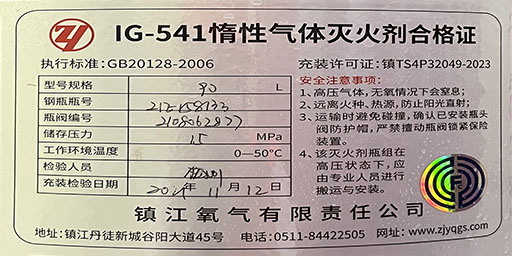 ZY IG-541惰性气体灭火剂合格证
执行标准:GB20128-2006
充装许可证:镇TS4P32049-2023
型号规格 90 L
钢瓶瓶号
瓶阀编号 2108062877
储存压力 15 MPa
工作环境温度 0—50℃
检验人员
充装检验日期 年11月12日
安全注意事项:
1、高压气体,无氧情况下会窒息;
2、远离火种、热源,防止阳光直射;
3、运输时避免碰撞,确认已安装瓶头
阀防护帽,严禁擅动瓶阀锁紧保险
装置。
4、该灭火剂瓶组在
高压状态下,应
由专业人员进行
搬运与安装。
镇江氧气有限责任公司
地址:镇江丹徒新城谷阳大道45号 电话:0511-84422505 网址:www.zjyqgs.com